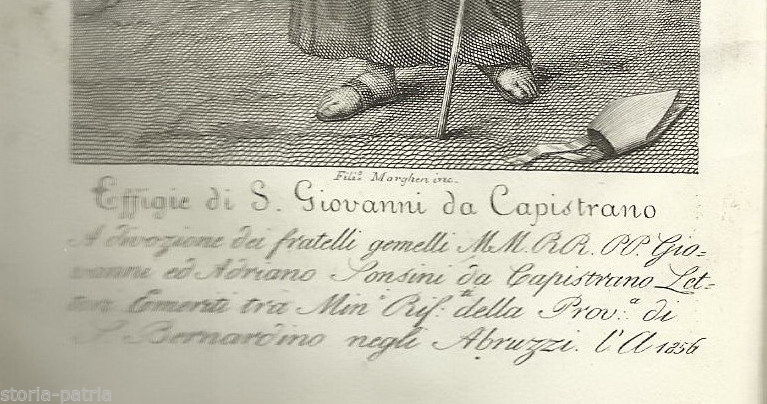 Fili.º Morghen inc.
Effigie di S. Giovanni da Capistrano
A divozione dei fratelli gemelli M.M. R.R. P.P. Gio-
vanni ed Adriano Sonsini da Capistrano Let-
tori Emeriti tra Min.i Rif.i della Prov.a di
S. Bernardino negli Abruzzi. l'A 1856
storia-patria